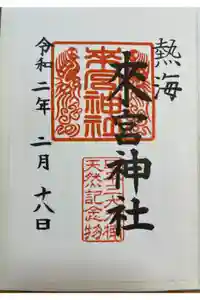 熱海
來宮神社
令和二年 二月 十八日
來宮神社
天然記念物